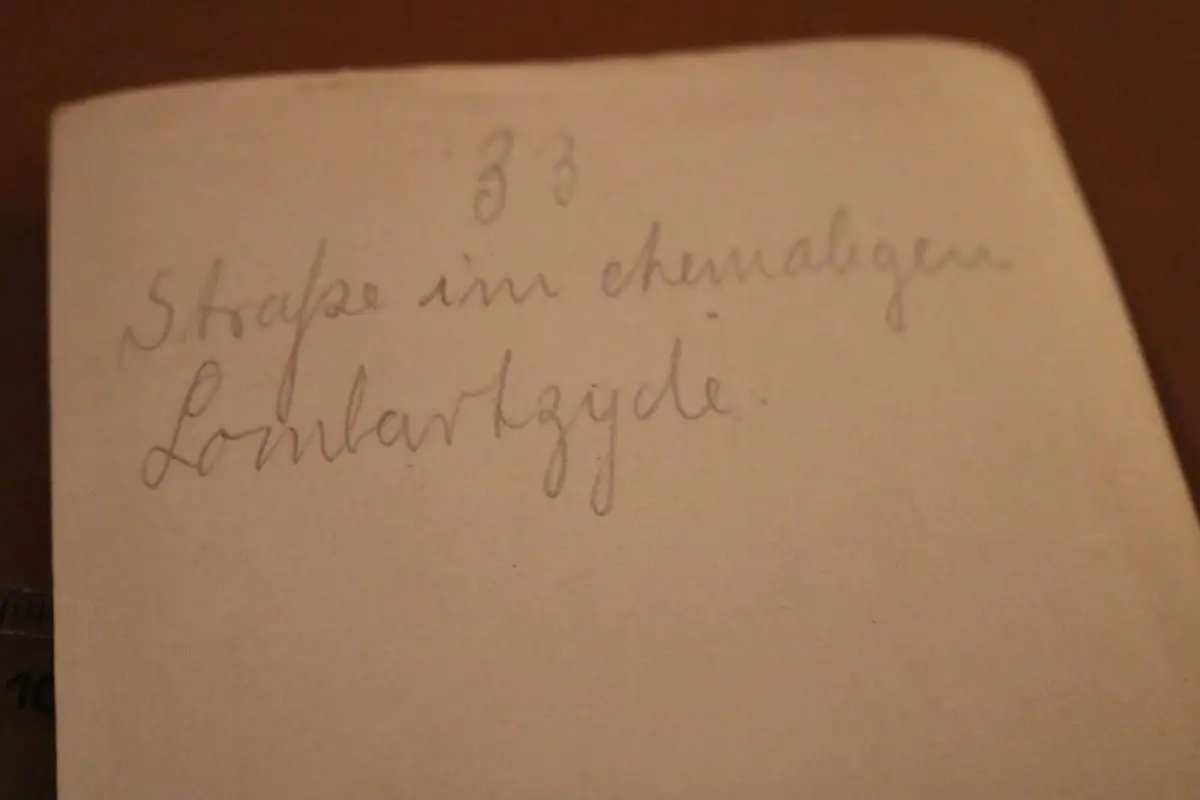 33
Straße im ehemaligen
Lombartzyde.
10